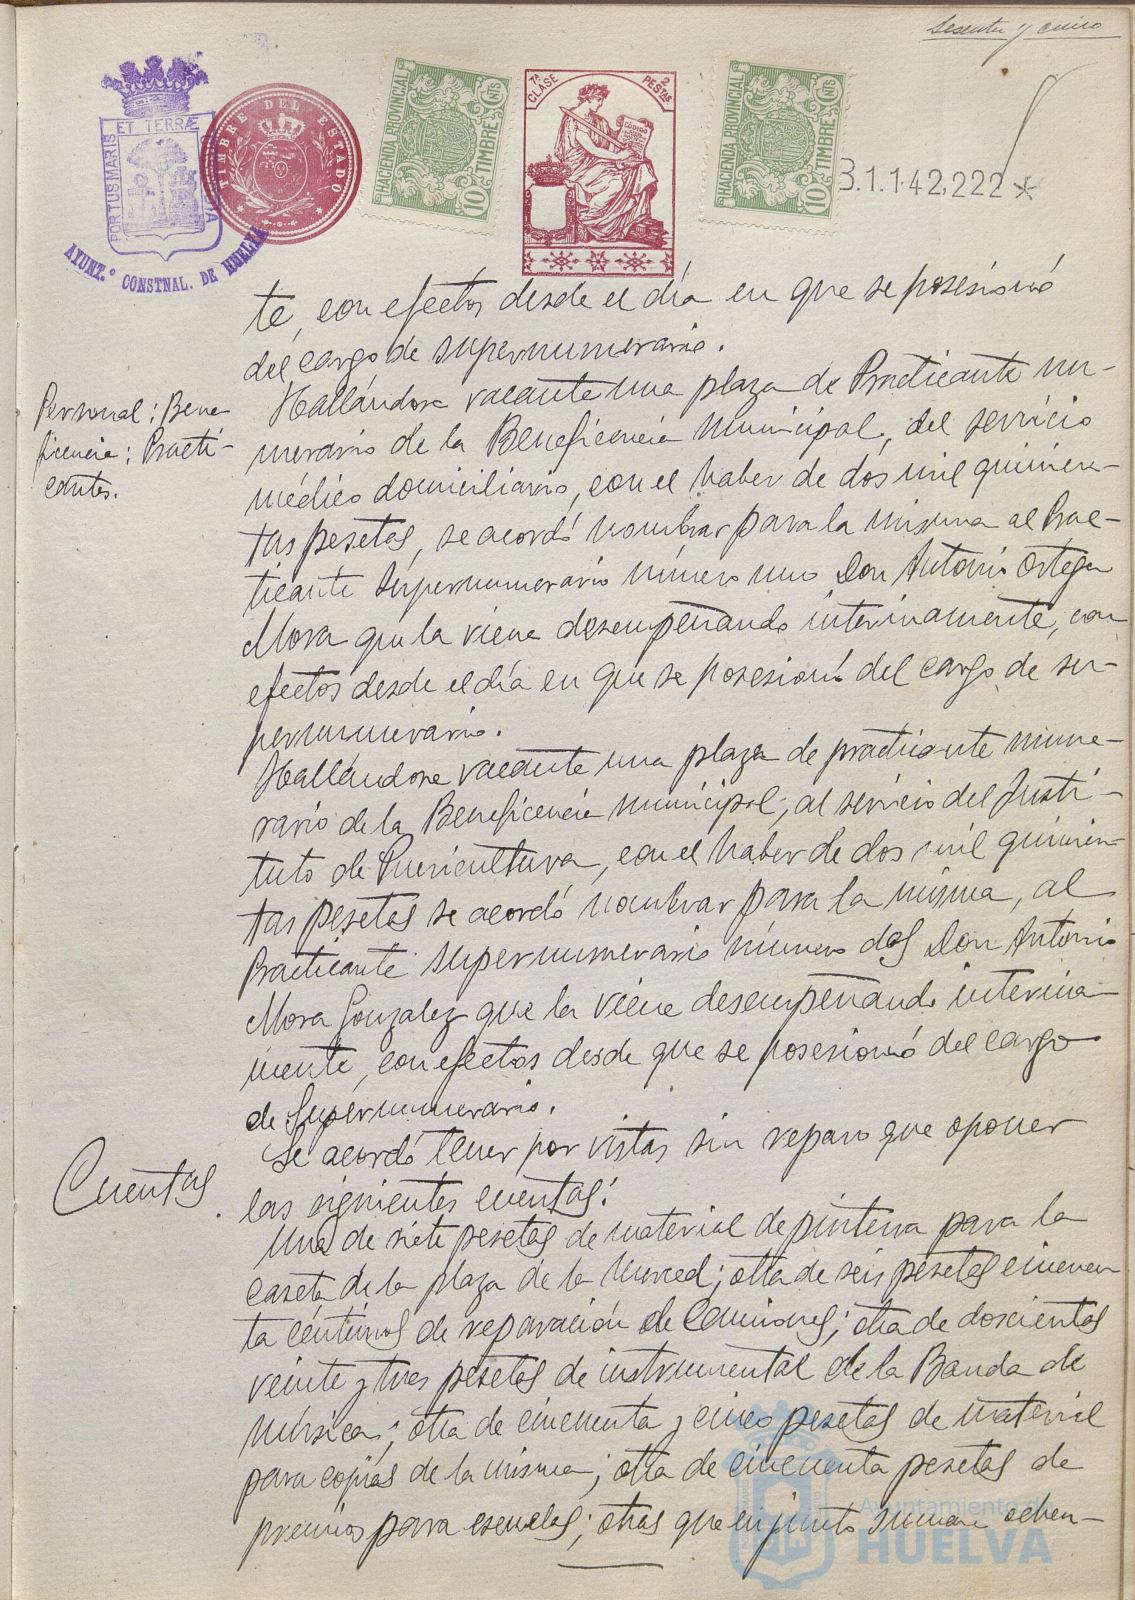 Sesenta y cinco
PORTUS MARIS ET TERRÆ CUSTODIA
AYUNT.º CONSTNAL. DE HUELVA
TIMBRE DEL ESTADO
HACIENDA PROVINCIAL
10 CNTS
TIMBRE
7ª CLASE
2 PESETAS
CODIGO
HACIENDA PROVINCIAL
10 CNTS
TIMBRE
B.1.142,222*
te, con efectos desde el día en que se posesionó
del cargo de supernumerario.
Personal: Bene
ficencia: Practi-
cantes.
Hallándose vacante una plaza de Practicante nu-
merario de la Beneficencia municipal, del servicio
médico domiciliario, con el haber de dos mil quinien-
tas pesetas, se acordó nombrar para la misma al Prac-
ticante Supernumerario número uno Don Antonio Ortega
Mora que la viene desempeñando interinamente, con
efectos desde el día en que se posesionó del cargo de su-
pernumerario.
Hallándose vacante una plaza de practicante nume-
rario de la Beneficencia municipal, al servicio del Insti-
tuto de Puericultura, con el haber de dos mil quinien-
tas pesetas se acordó nombrar para la misma, al
Practicante supernumerario número dos Don Antonio
Mora Gonzalez que la viene desempeñando interina-
mente, con efectos desde que se posesionó del cargo
de Supernumerario.
Cuentas.
Se acordó tener por vistas sin reparo que oponer
las siguientes cuentas:
Una de siete pesetas de material de pintura para la
caseta de la plaza de la Merced; otra de seis pesetas cincuen
ta céntimos de reparación de Camiones; otra de doscientas
veinte y tres pesetas de instrumental de la Banda de
música; otra de cincuenta y cinco pesetas de material
para copias de la misma; otra de cincuenta pesetas de
premios para escuelas; otras que en junto suman ochen-
Ayuntamiento de
HUELVA